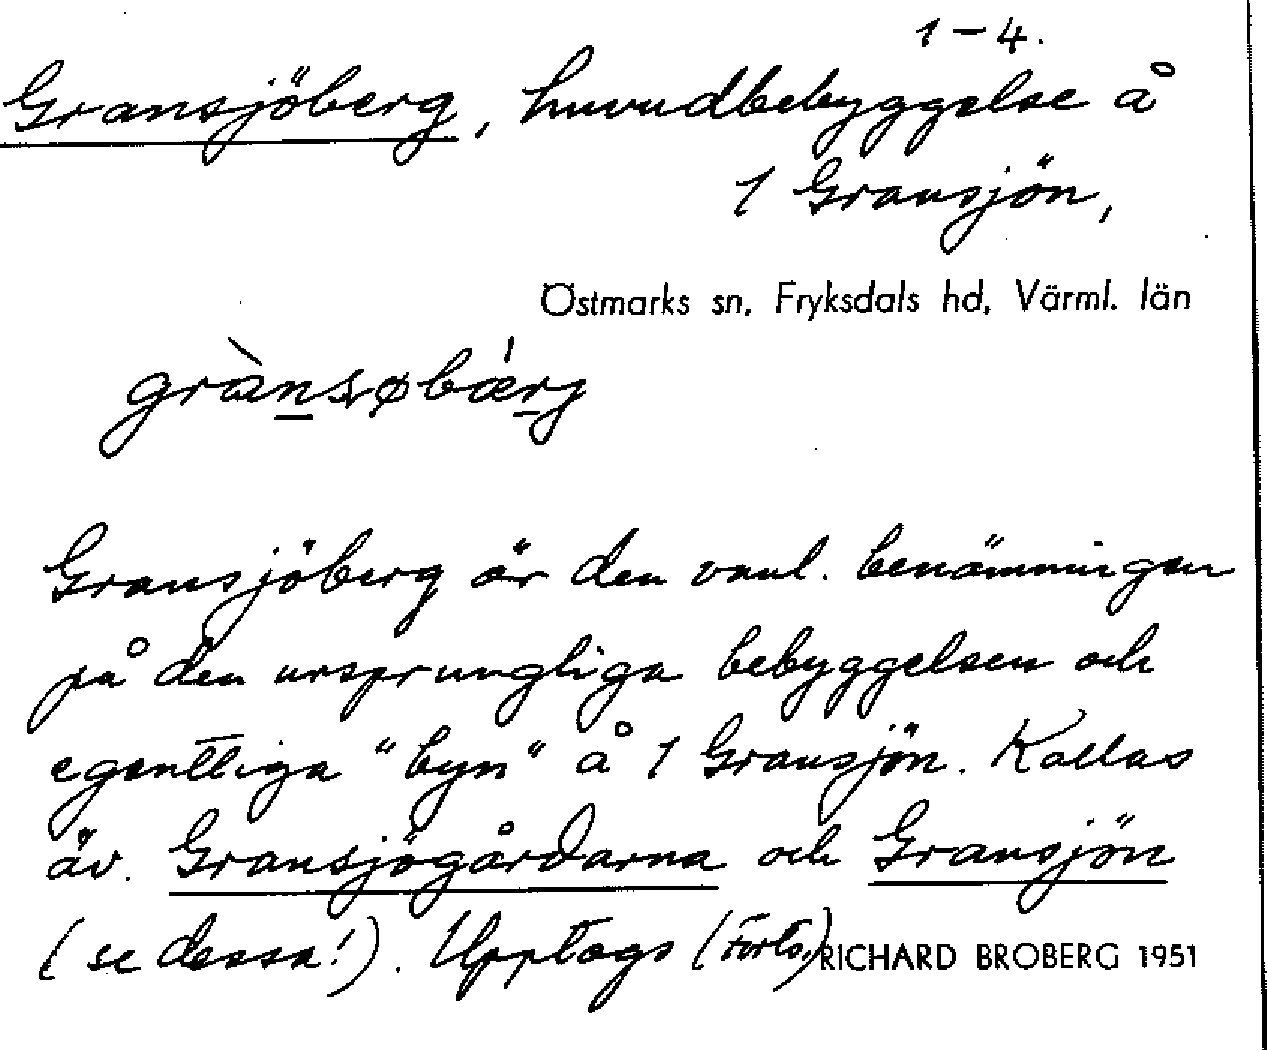 1–4.
Gransjöberg, huvudbebyggelse å
1 Gransjön,
Östmarks sn, Fryksdals hd, Värml. län
Gransjöberg är den vanl. benämningen
på den ursprungliga bebyggelsen och
egentliga "byn" å 1 Gransjön. Kallas
äv. Gransjögårdarna och Gransjön
(se dessa!). Upptogs (Forts.)
RICHARD BROBERG 1951